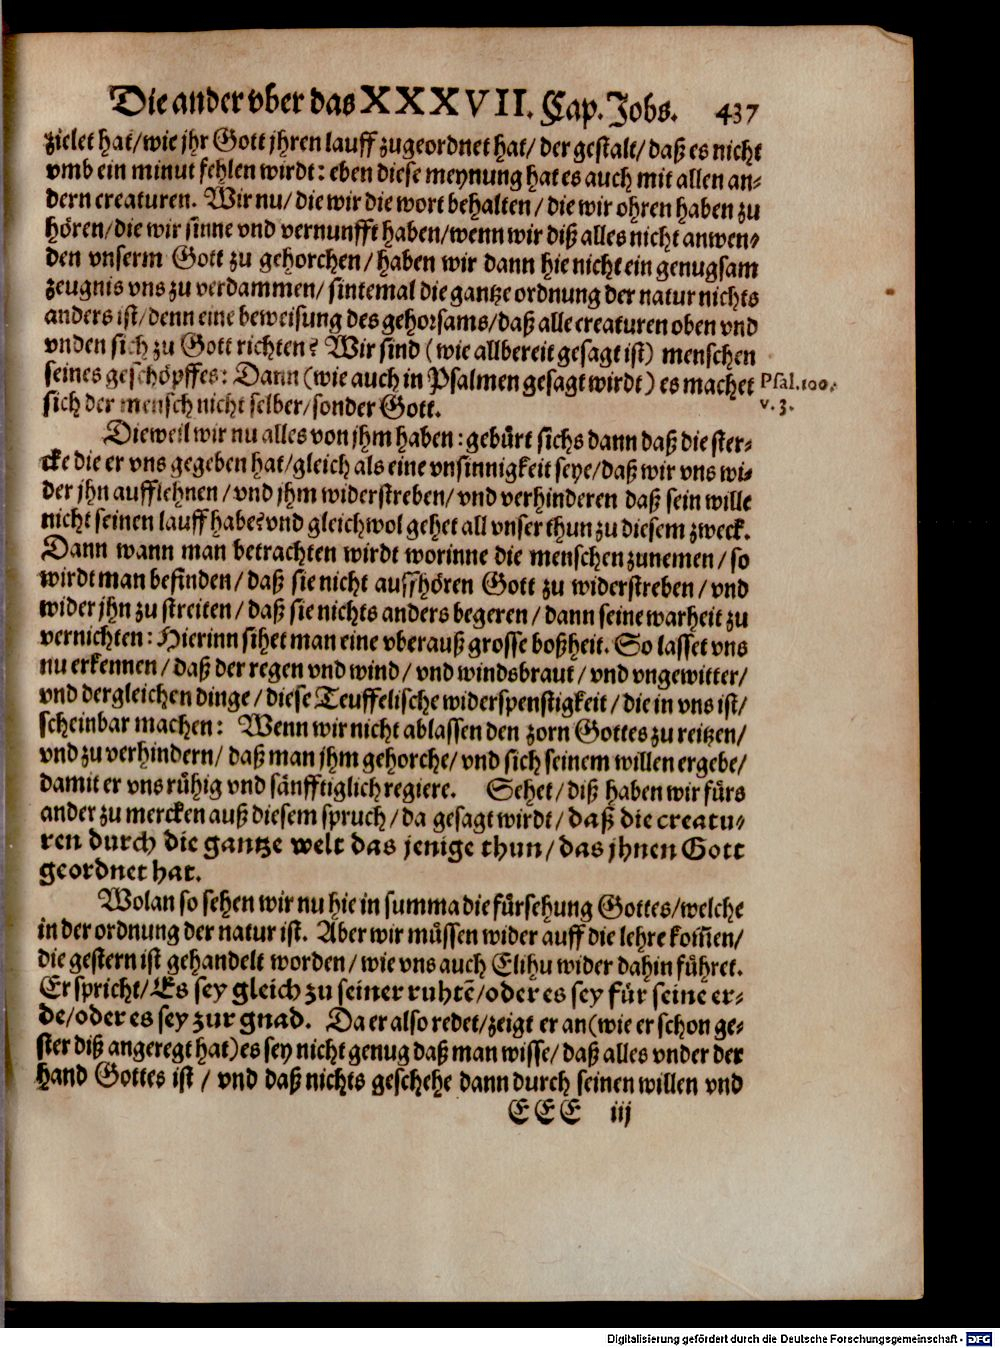 Die ander vber das XXXVII. Cap. Jobs. 437
zielet hat/wie jhr Gott jhren lauff zugeordnet hat/ der gestalt/ daß es nicht
vmb ein minut fehlen wirdt: eben diese meynung hat es auch mit allen an-
dern creaturen. Wir nu/ die wir die wort behalten/ die wir ohren haben zu
hören/ die wir sinne vnd vernunfft haben/wenn wir diß alles nicht anwen-
den vnserm Gott zu gehorchen/ haben wir dann hie nicht ein genugsam
zeugnis vns zu verdammen/ sintemal die gantze ordnung der natur nichts
anders ist/ denn eine beweisung des gehorsams/ daß alle creaturen oben vnd
vnden sich zu Gott richten? Wir sind (wie allbereit gesagt ist) menschen
seines geschöpffes: Dann (wie auch in Psalmen gesagt wirdt) es machet Psal.100.
sich der mensch nicht selber/ sonder Gott. v. 3.
Dieweil wir nu alles von jhm haben: gebürt sichs dann daß die ster-
cke die er vns gegeben hat/gleich als eine vnsinnigkeit seye/ daß wir vns wi-
der jhn aufflehnen/ vnd jhm widerstreben/ vnd verhinderen daß sein wille
nicht seinen lauff habe? vnd gleichwol gehet all vnser thun zu diesem zweck.
Dann wann man betrachten wirdt worinne die menschen zunemen/ so
wirdt man befinden/ daß sie nicht auffhören Gott zu widerstreben/ vnd
wider jhn zu streiten/ daß sie nichts anders begeren/ dann seine warheit zu
vernichten: Hierinn sihet man eine vberauß grosse boßheit. So lasset vns
nu erkennen/ daß der regen vnd wind/ vnd windsbraut/ vnd vngewitter/
vnd dergleichen dinge/ diese Teuffelische widerspenstigkeit/ die in vns ist/
scheinbar machen: Wenn wir nicht ablassen den zorn Gottes zu reitzen/
vnd zu verhindern/ daß man jhm gehorche/ vnd sich seinem willen ergebe/
damit er vns rühig vnd sänfftiglich regiere. Sehet/ diß haben wir fürs
ander zu mercken auß diesem spruch/ da gesagt wirdt/ daß die creatu-
ren durch die gantze welt das jenige thun/ das jhnen Gott
geordnet hat.
Wolan so sehen wir nu hie in summa die fürsehung Gottes/welche
in der ordnung der natur ist. Aber wir müssen wider auff die lehre kom̃en/
die gestern ist gehandelt worden/ wie vns auch Elihu wider dahin führet.
Er spricht/ Es sey gleich zu seiner ruhtē/oder es sey für seine er-
de/oder es sey zur gnad. Da er also redet/zeigt er an(wie er schon ge-
ster diß angeregt hat)es sey nicht genug daß man wisse/ daß alles vnder der
hand Gottes ist/ vnd daß nichts geschehe dann durch seinen willen vnd
EEE iij
Digitalisierung gefördert durch die Deutsche Forschungsgemeinschaft - DFG